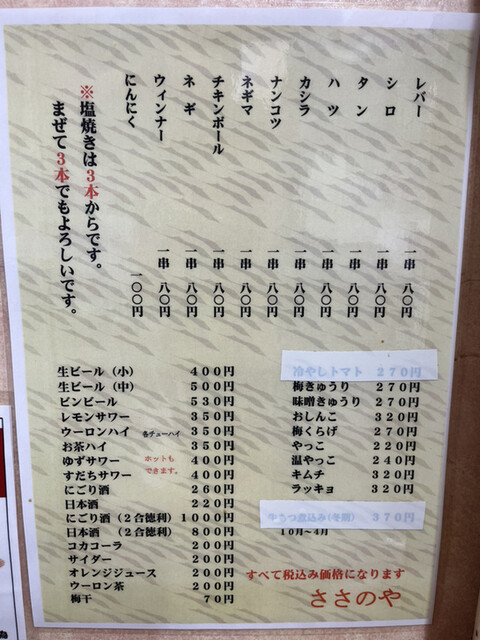 レバー 一串 八〇円
シロ 一串 八〇円
タン 一串 八〇円
ハツ 一串 八〇円
カシラ 一串 八〇円
ナンコツ 一串 八〇円
ネギマ 一串 八〇円
チキンボール 一串 八〇円
ネギ 一串 八〇円
ウィンナー 一串 八〇円
にんにく 一〇〇円
※塩焼きは3本からです。
まぜて3本でもよろしいです。
生ビール（小） 400円
生ビール（中） 500円
ビンビール 530円
レモンサワー 350円
ウーロンハイ 各チューハイ 350円
お茶ハイ 350円
ゆずサワー 400円
すだちサワー 400円
ホットも
できます。
にごり酒 260円
日本酒 220円
にごり酒（2合徳利） 1000円
日本酒（2合徳利） 800円
コカコーラ 200円
サイダー 200円
オレンジジュース 200円
ウーロン茶 200円
梅干 70円
冷やしトマト 270円
梅きゅうり 270円
味噌きゅうり 270円
おしんこ 320円
梅くらげ 270円
やっこ 220円
温やっこ 240円
キムチ 320円
ラッキョ 320円
牛もつ煮込み(冬期) 370円
10月～4月
すべて税込み価格になります
ささのや